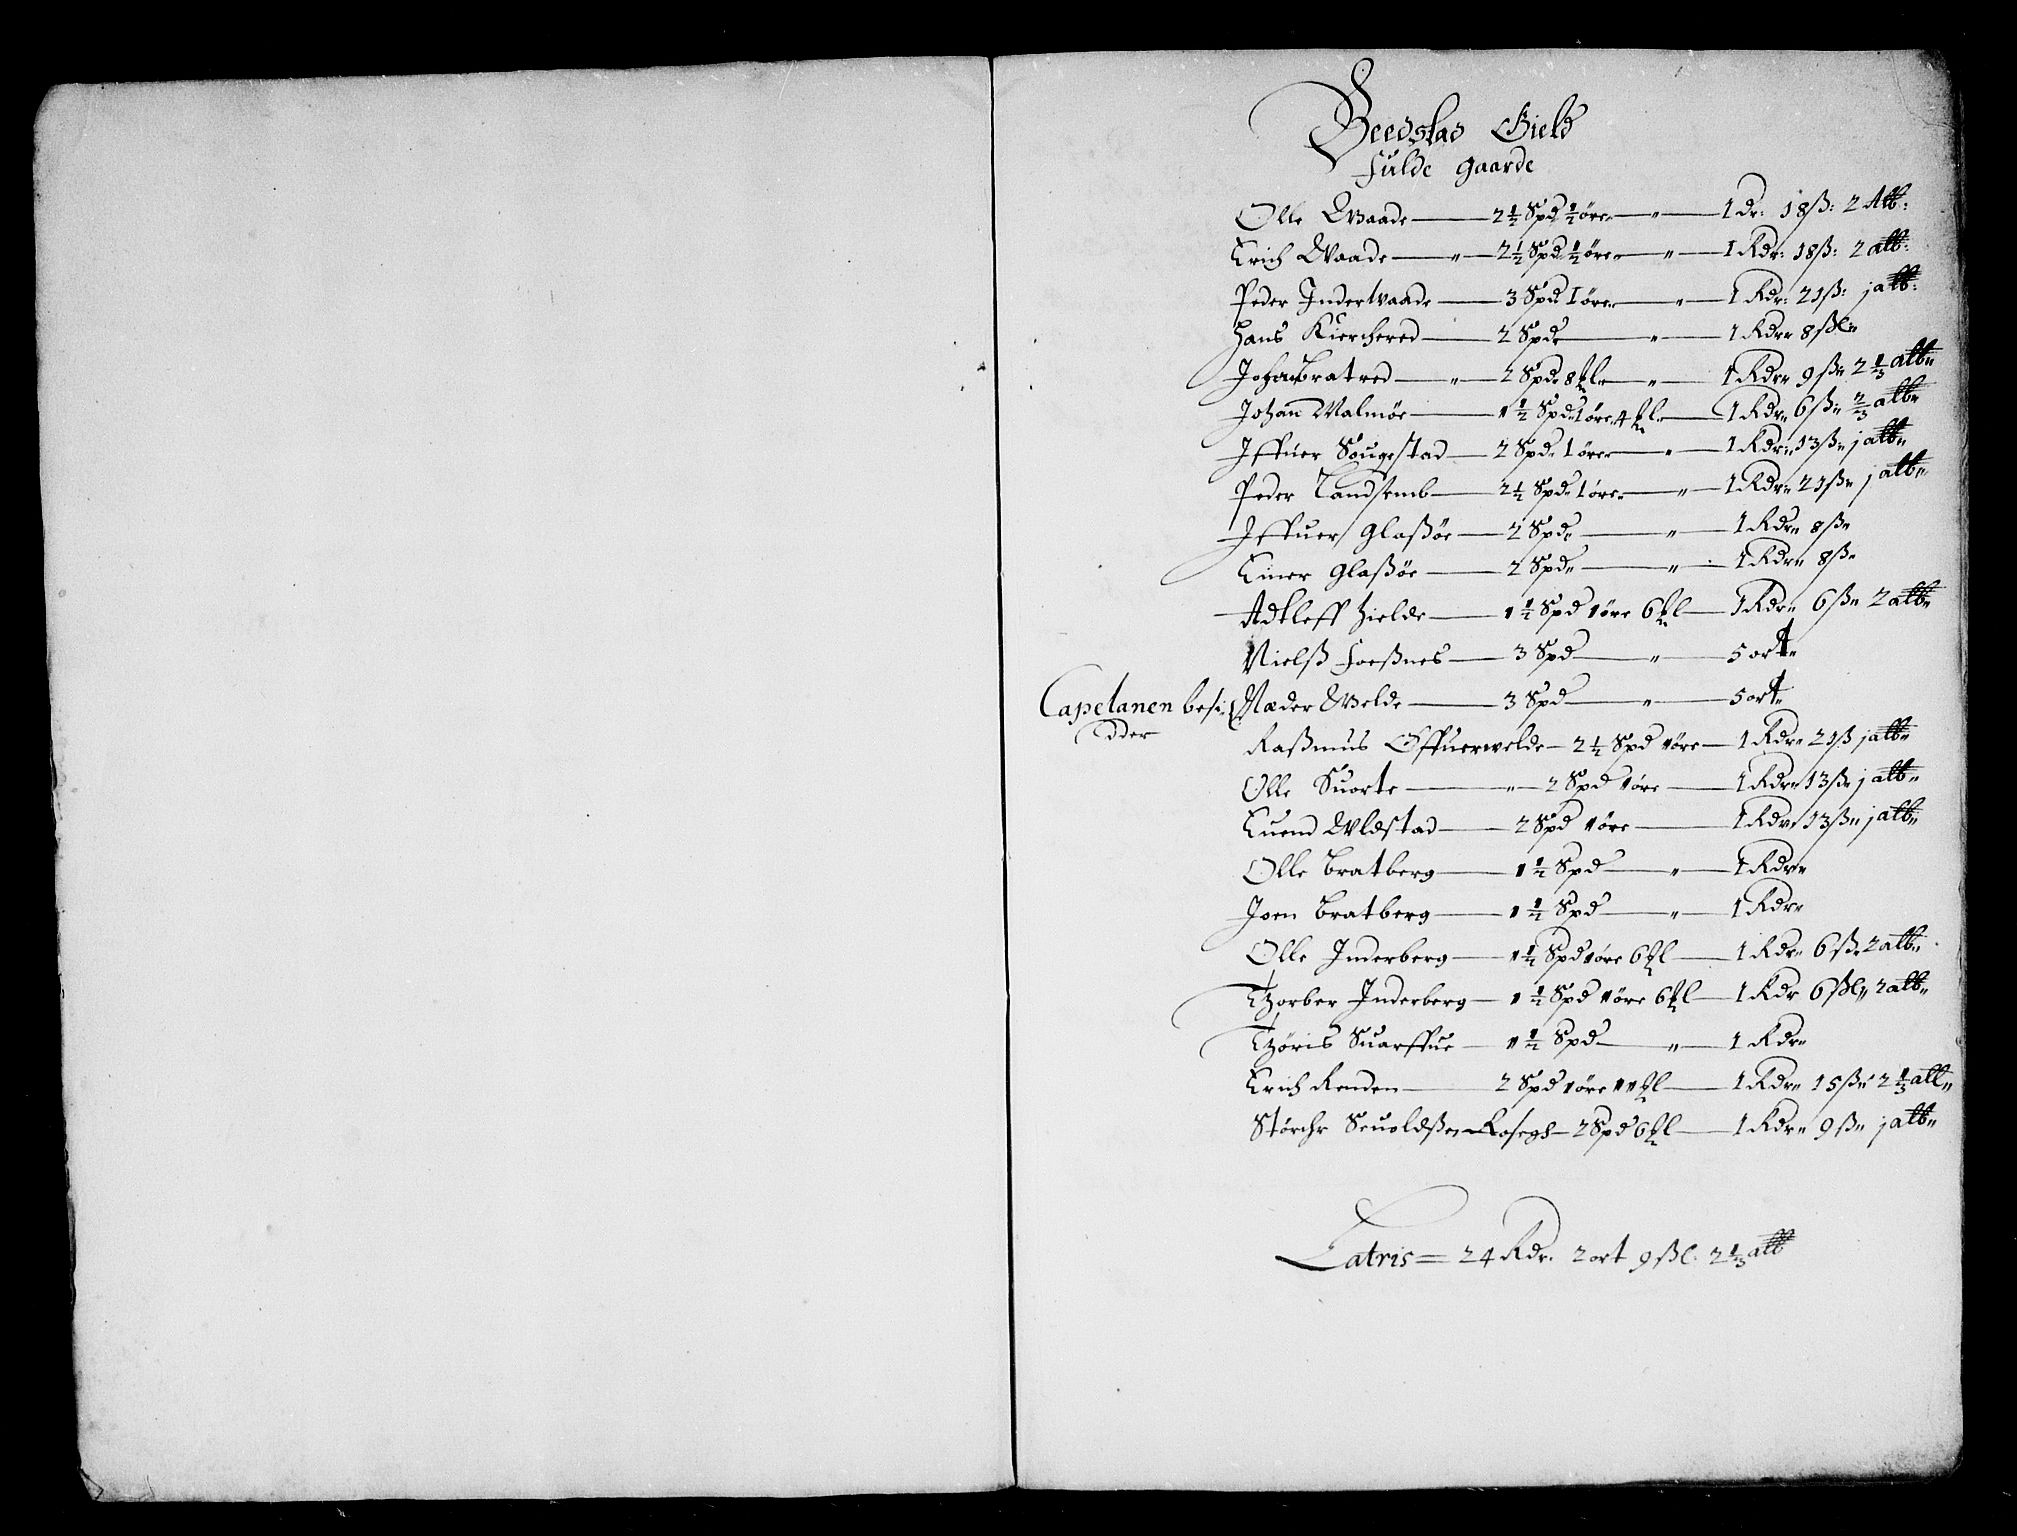 Beedstad Gield
Fulde gaarde
Olle Waade — 2½ Spd ½ øre „ — 1 dr: 18ß: 2 alb:
Erich Waade — „ — 2½ Spd ½ øre „ — 1 Rdr: 18ß: 2 alb:
Peder Indertvaade — 3 Spd 1 øre „ — 1 Rdr: 21ß: j alb:
Hans Kirchered — 2 Spd „ — 1 Rdr 8 ßl„
Johan Bratred — „ — 2 Spd 8 ℔l „ — 1 Rdr 9 ß„ 2⅓ alb„
Johan Malmøe — 1½ Spd 1 øre 4 ℔l — 1 Rdr 6 ß„ ⅔ alb„
Iffuer Sougestad — 2 Spd 1 øre „ — 1 Rdr 13ß„ j alb„
Peder Landsemb — 2½ Spd 1 øre „ — 1 Rdr 21ß„ j alb„
Iffuer Glaßøe — 2 Spd „ — 1 Rdr 8ß„
Einer Glaßøe — 2 Spd „ — 1 Rdr 8ß„
Adtleff Hielde — 1½ Spd 1 øre 6 ℔l — 1 Rdr 6ß„ 2 alb„
Nielß Foeßnes — 3 Spd „ — 5 ort„
Capelanen besi-
dder
Næder Welde — 3 Spd „ — 5 ort„
Raßmus Offuerwelde — 2½ Spd 1 øre — 1 Rdr 21ß j alb„
Olle Suorte — „ — 2 Spd 1 øre — 1 Rdr 13ß„ j alb„
Euend Wldstad — 2 Spd 1 øre — 1 Rdr 13ß„ j alb„
Olle Bratberg — 1½ Spd „ — 1 Rdr„
Joen Bratberg — 1½ Spd „ — 1 Rdr„
Olle Inderberg — 1½ Spd 1 øre 6 ℔l — 1 Rdr 6ß„ 2 alb„
Thorber Inderberg — 1½ Spd 1 øre 6 ℔l — 1 Rdr 6 ßl„ 2 alb„
Thøris Suarffue — 1½ Spd „ — 1 Rdr„
Erich Renden — 2 Spd 1 øre 11 ℔l — 1 Rdr 15ß„ 2⅓ alb„
Størchr — 2 Spd 6 ℔l — 1 Rdr 9ß„ j alb„
Latris = 24 Rdr. 2 ort 9 ßl. 2⅓ alb